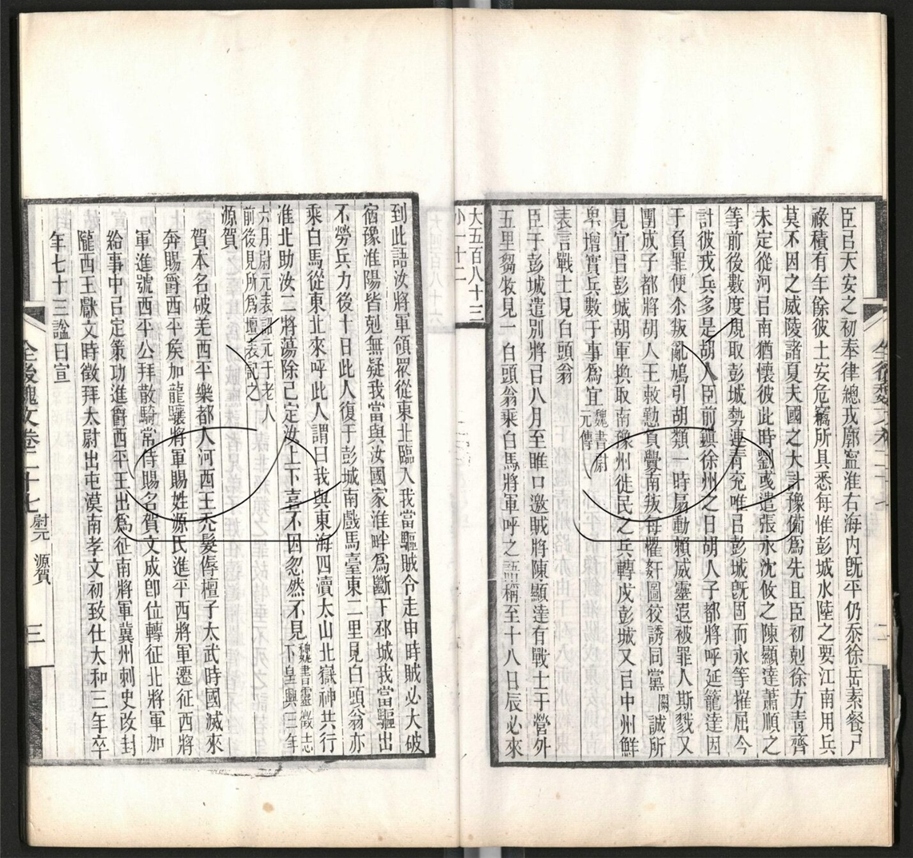 臣㠯天安之初奉律總戎廓寍淮右海内旣平仍忝徐岳素餐尸
祿積有年餘彼土安危竊所具悉每惟彭城水陸之要江南用兵
莫不因之威陵諸夏夫國之大計豫備爲先且臣初剋徐方青齊
未定從河㠯南猶懷彼此時劉彧遣張永沈攸之陳顯達蕭順之
等前後數度規取彭城勢連青兗唯㠯彭城旣固而永等摧屈今
計彼戎兵多是胡人臣前鎮徐州之日胡人子都將呼延籠達因
于負罪便尒叛亂鳩引胡類一時扇動賴威靈遐被罪人斯戮又
團城子都將胡人王敕懃負釁南叛每懼姦圖狡誘同黨闕誠所
見宜㠯彭城胡軍換取南豫州徙民之兵轉戍彭城又㠯中州鮮
卑增實兵數于事爲宜魏書尉
元傳
表言戰士見白頭翁
臣于彭城遣別將㠯八月至睢口邀賊將陳顯達有戰士于營外
五里芻牧見一白頭翁乗白馬將軍呼之語稱至十八日辰必來
大五百八十三
小一十二
到此語汝將軍領眾從東北臨入我當驅賊令走申時賊必大破
宿豫淮陽皆剋無疑我當與汝國家淮畔爲斷下邳城我當驅出
不勞兵力後十日此人復于彭城南戲馬臺東二里見白頭翁亦
乘白馬從東北來呼此人謂曰我與東海四瀆太山北嶽神共行
淮北助汝二將蕩除已定汝上下喜不因忽然不見魏書靈徵志
下皇興三年
六月尉元表
前後見所爲壇表記之
源賀
賀本名破羌西平樂都人河西王禿髮傉檀子太武時國滅來
奔賜爵西平矦加龍驤將軍賜姓源氏進平西將軍遷征西將
軍進號西平公拜散騎常侍賜名賀文成卽位轉征北將軍加
給事中㠯定策功進爵西平王出爲征南將軍冀州刺史改封
隴西王獻文時徵拜太尉出屯漠南孝文初致仕太和三年卒
年七十三諡曰宣
全後魏文卷二十七
尉元
源賀
三